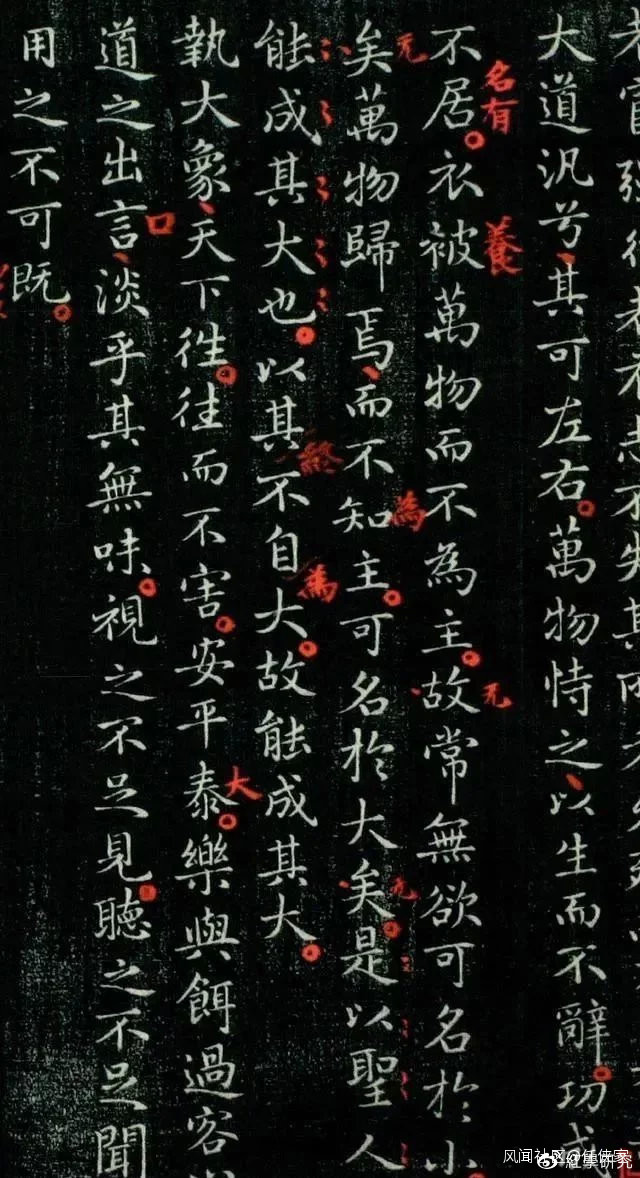 強行者有志不失其所
大道汎兮、其可左右。萬物恃之、以生而不辭。功成
名有 養 无
不居。衣被萬物而不為主。故常無欲可名於小
无 為 无
矣萬物歸焉、而不知主。可名於大矣。是以聖人
能成其大也。以其不自大。故能成其大。
終 為
執大象、天下往。往而不害。安平泰。樂與餌過客
大
道之出言、淡乎其無味。視之不足見。聽之不足聞
口
用之不可既。
风闻社区